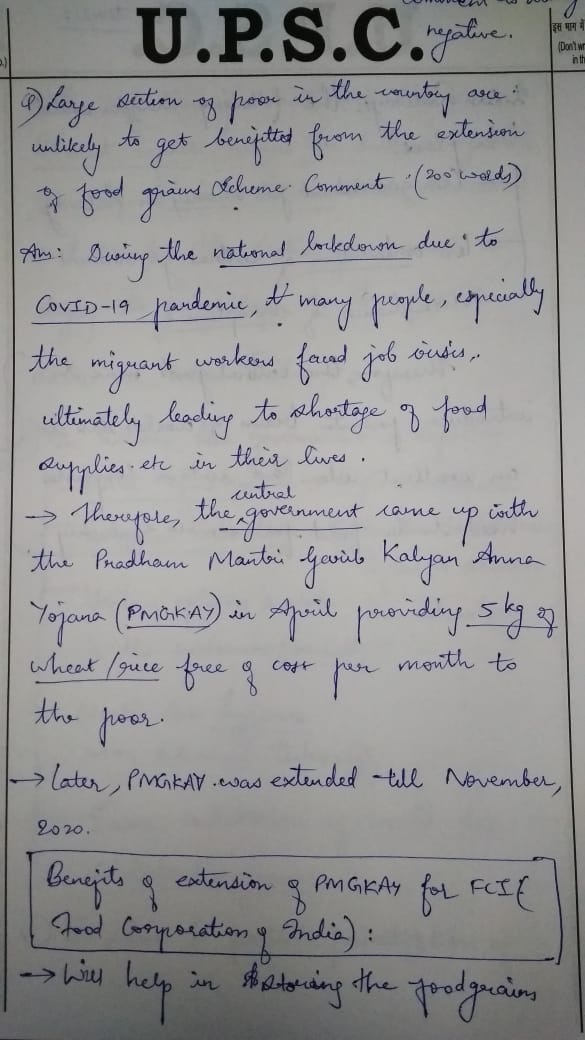 comment is
negative.
U.P.S.C.
इस भाग में
(Don't wr
in th
Q) Large section of poor in the country are
unlikely to get benefitted from the extension
of food grains scheme. Comment. (200 words)
Ans: During the national lockdown due to
COVID-19 pandemic, many people, especially
the migrant workers faced job crisis,
ultimately leading to shortage of food
supplies etc in their lives.
→ Therefore, the central government came up with
the Pradham Mantri Garib Kalyan Anna
Yojana (PMGKAY) in April providing 5 kg of
wheat/rice free of cost per month to
the poor.
→ Later, PMGKAY was extended till November,
2020.
Benefits of extension of PMGKAY for FCI (
Food Corporation of India) :
→ Will help in storing the foodgrains